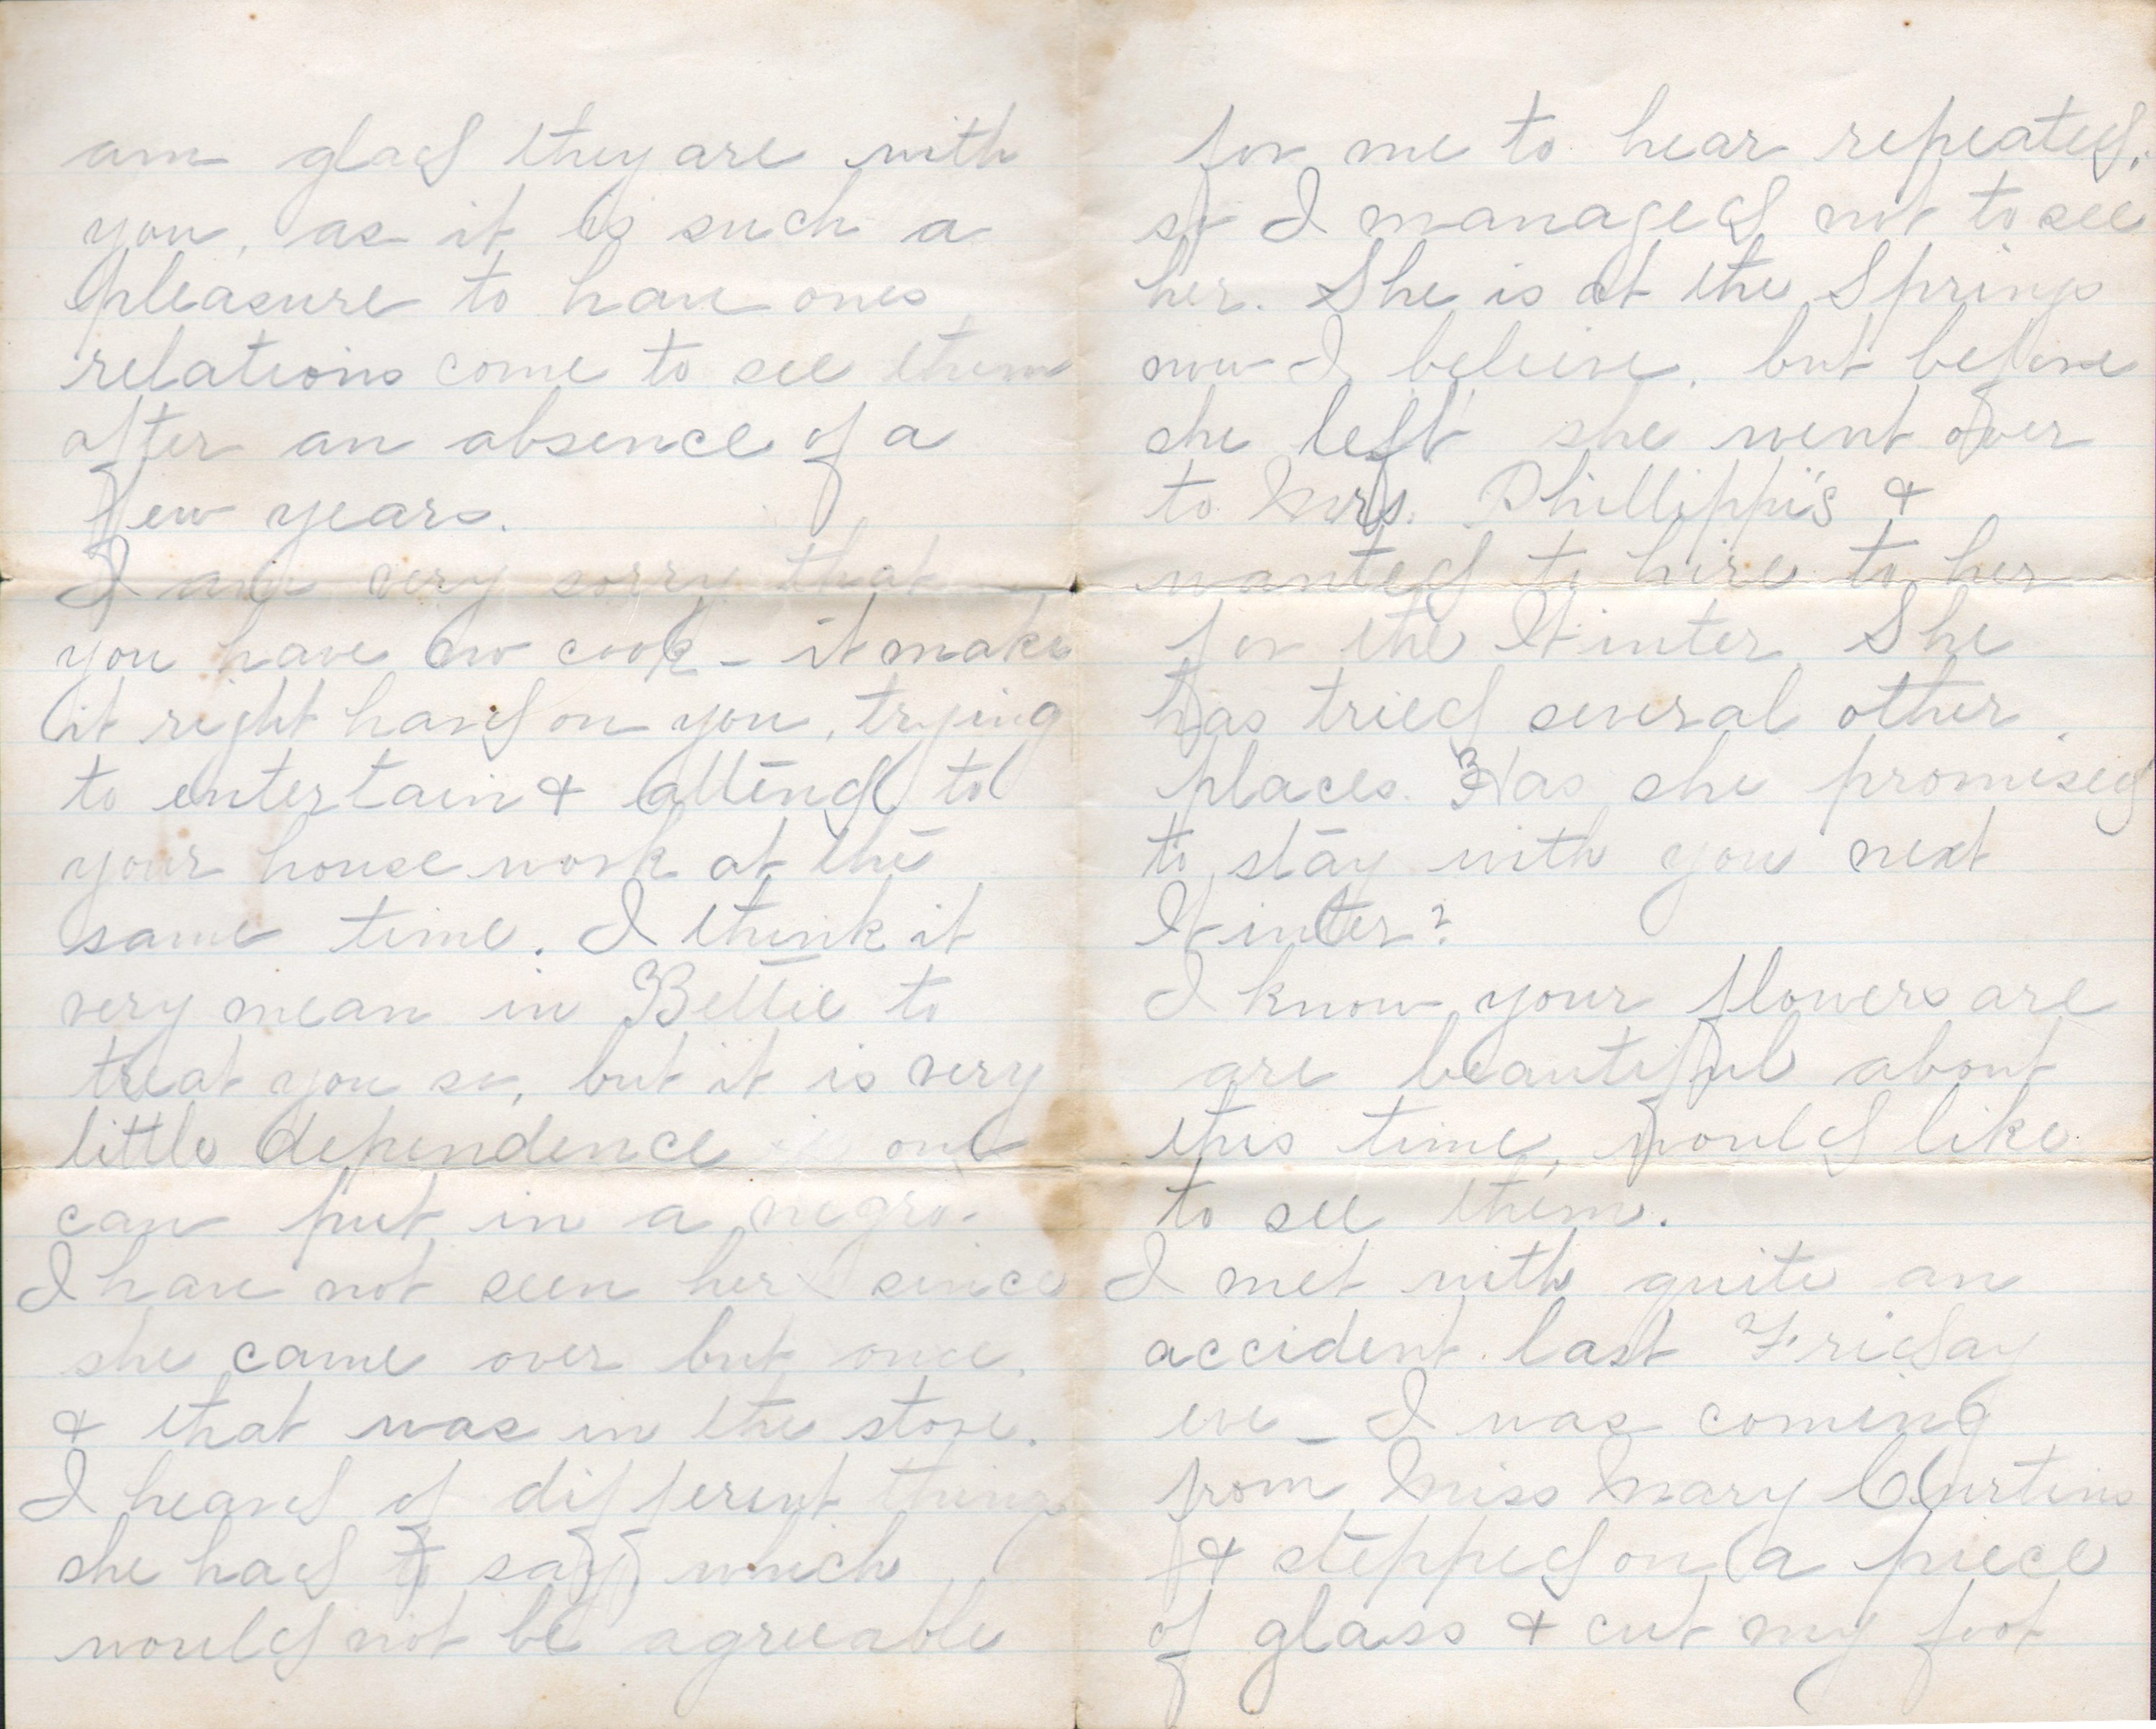 am glad they are with
you, as it is such a
pleasure to have ones
relations come to see them
after an absence of a
few years.
I am very sorry that
you have no cook - it makes
it right hard on you, trying
to entertain & attend to
your house work at the
same time. I think it
very mean in Bettie to
treat you so, but it is very
little dependence one
can put in a negro.
I have not seen her since
she came over but once,
& that was in the store.
I heard of different things
she had to say, which
would not be agreeable
for me to hear repeated,
so I managed not to see
her. She is at the Springs
now I beleive, but before
she left she went over
to Mrs. Phillippi's &
wanted to hire to her
for the Winter She
has tried several other
places. Has she promised
to stay with you next
Winter?
I know your flowers are
are beautiful about
this time, would like
to see them.
I met with quite an
accident last Friday
eve - I was coming
from Miss Mary Curtins
& stepped on a piece
of glass & cut my foot